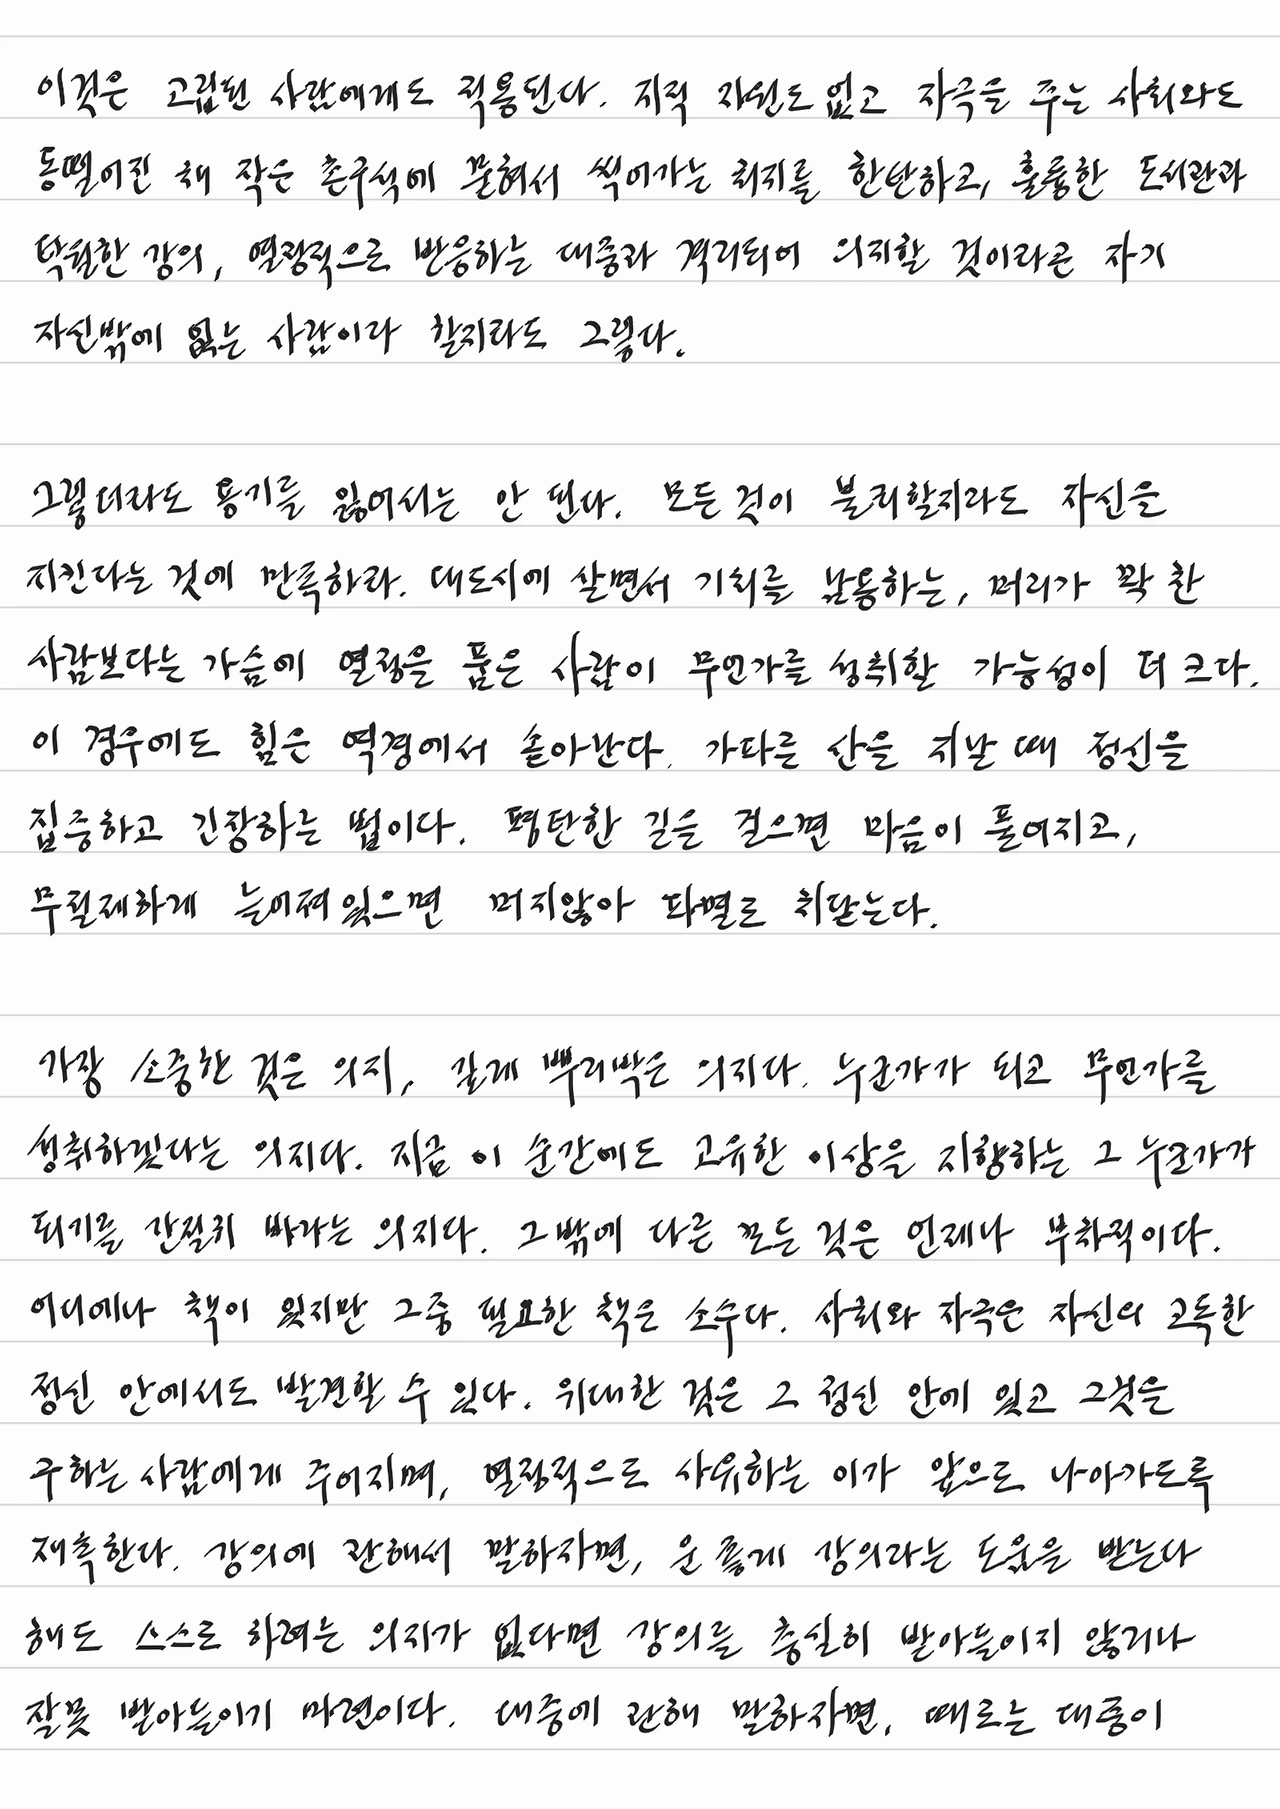 이것은 고립된 사람에게도 적용된다. 지적 자원도 없고 자극을 주는 사회와도
동떨어진 채 작은 촌구석에 묻혀서 썩어가는 처지를 한탄하고, 훌륭한 도서관과
탁월한 강의, 열광적으로 반응하는 대중과 격리되어 의지할 것이라곤 자기
자신밖에 없는 사람이라 할지라도 그렇다.
그렇더라도 용기를 잃어서는 안 된다. 모든 것이 불리할지라도 자신을
지킨다는 것에 만족하라. 대도시에 살면서 기회를 남용하는, 머리가 꽉 찬
사람보다는 가슴에 열정을 품은 사람이 무언가를 성취할 가능성이 더 크다.
이 경우에도 힘은 역경에서 솟아난다. 가파른 산을 지날 때 정신을
집중하고 긴장하는 법이다. 평탄한 길을 걸으면 마음이 풀어지고,
무절제하게 늘어져있으면 머지않아 파멸로 치닫는다.
가장 소중한 것은 의지, 깊게 뿌리박은 의지다. 누군가가 되고 무언가를
성취하겠다는 의지다. 지금 이 순간에도 고유한 이상을 지향하는 그 누군가가
되기를 간절히 바라는 의지다. 그밖에 다른 모든 것은 언제나 부차적이다.
어디에나 책이 있지만 그중 필요한 책은 소수다. 사회와 자극은 자신의 고독한
정신 안에서도 발견할 수 있다. 위대한 것은 그 정신 안에 있고 그것은
구하는 사람에게 주어지며, 열정적으로 사유하는 이가 앞으로 나아가도록
재촉한다. 강의에 관해서 말하자면, 운 좋게 강의라는 도움을 받는다
해도 스스로 하려는 의지가 없다면 강의를 충실히 받아들이지 않거나
잘못 받아들이기 마련이다. 대중에 관해 말하자면, 때로는 대중이